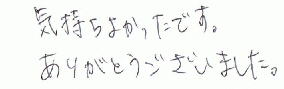 気持ちよかったです。
ありがとうございました。